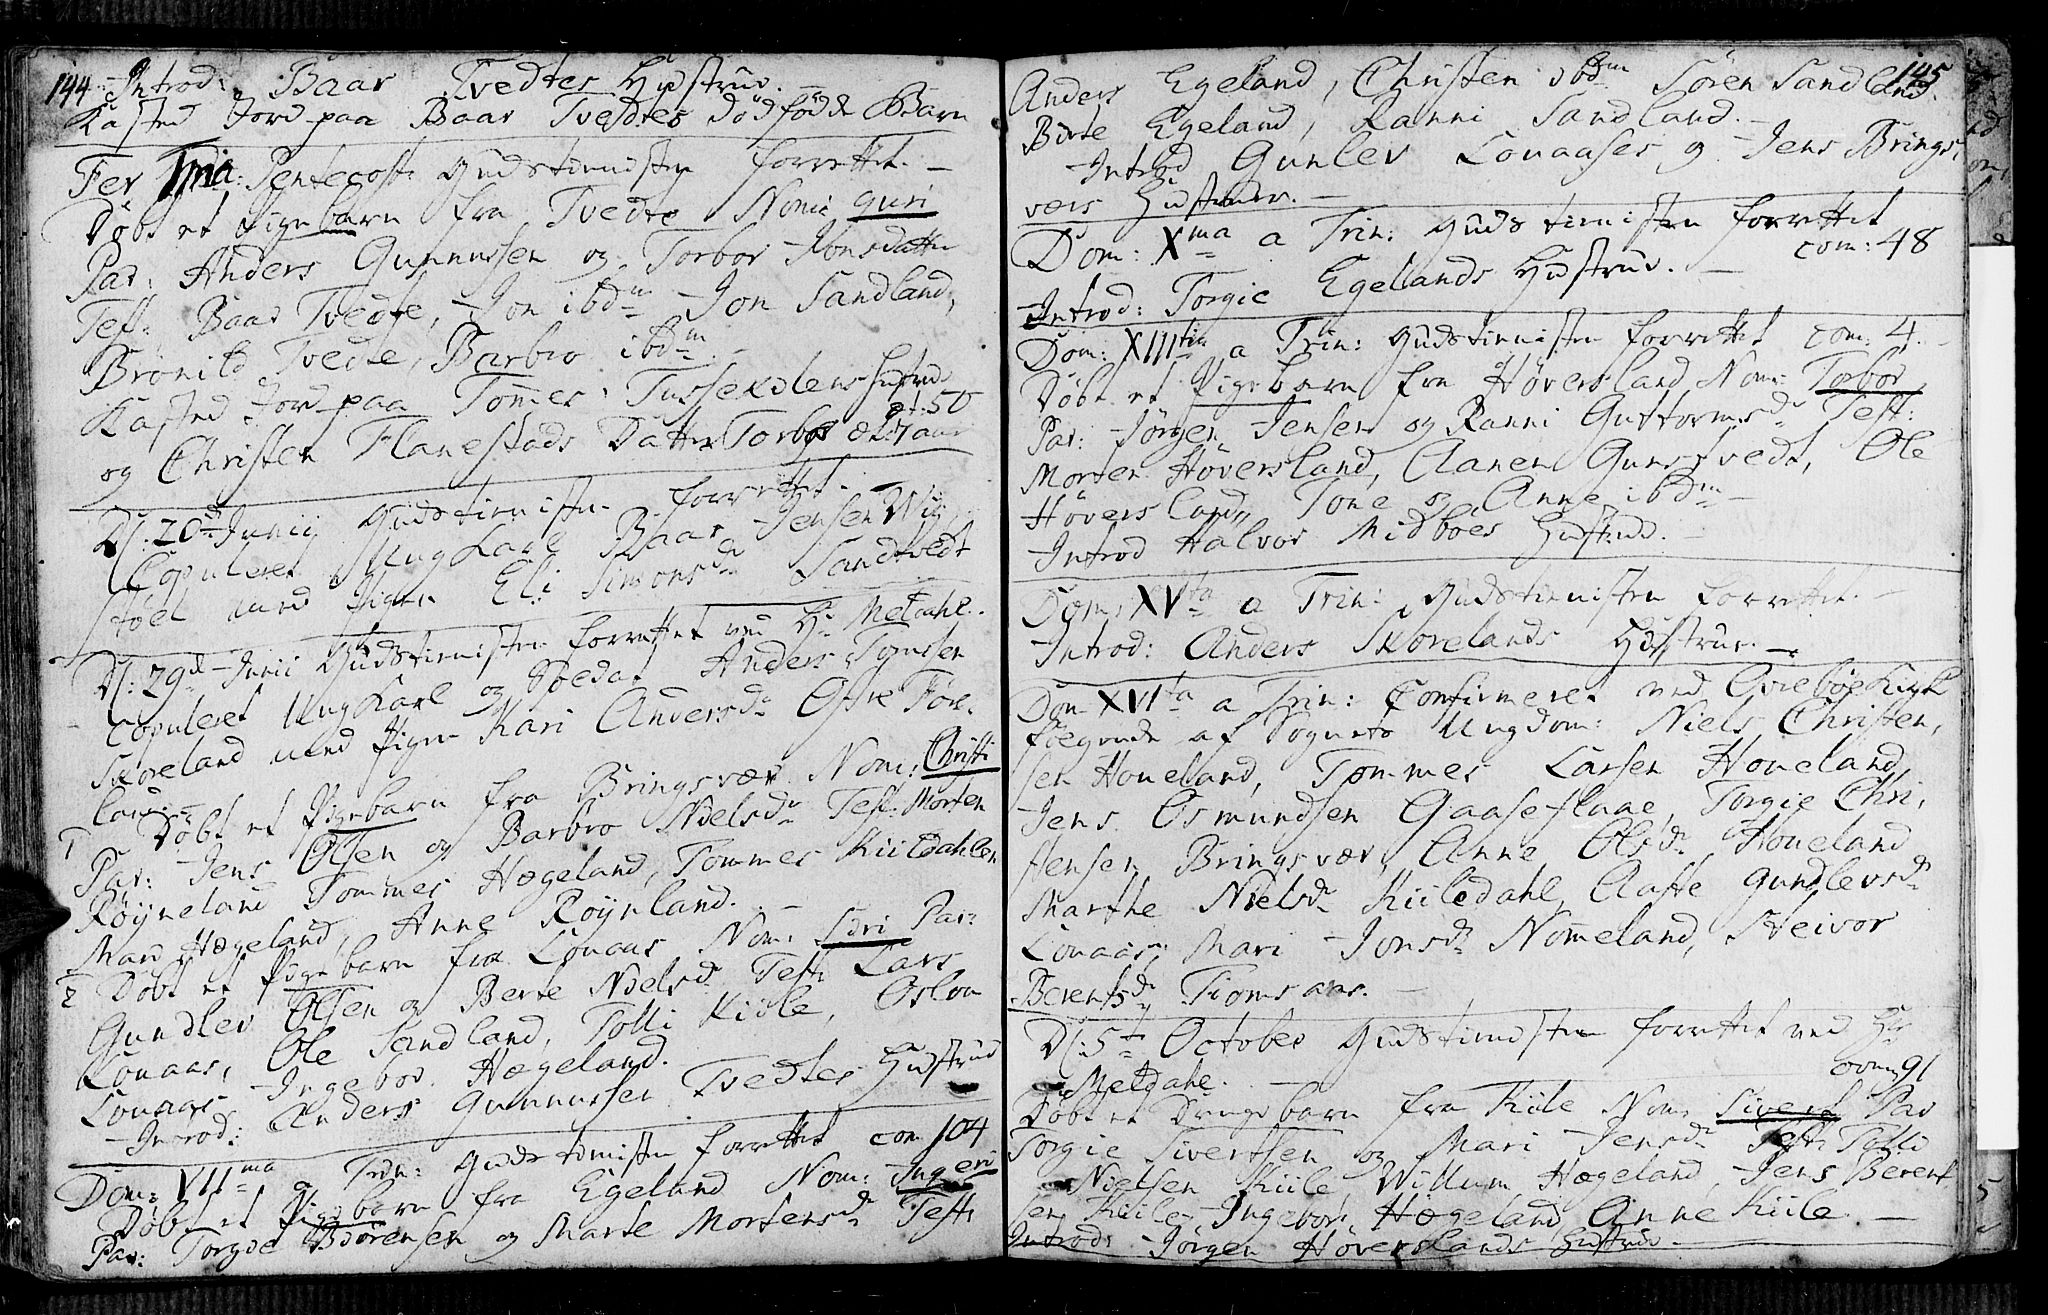 144 Introd: Baar Tvedtes Hustrue. —
Kasted Jord paa Baar Tvedtes dødfødde Barn
Fer Tria: Pentecost: Gudstienisten forrettet. —
Døbt et Pigebarn fra Tvedte Nom: Guri
Par: Anders Gunnursen og Torbor Jonsdatter
Test: Baar Tvedte, Jon ibdm Jon Sandland,
Brønild Tvedte, Barbro ibdm. —
Kasted Jord paa Tommes Tussekdlens Hustrue
æt: 50
og Christen Flanestads Datter Torbor æt: 7 aar
D: 20de Junij Gudstienisten forrettet. —
Copuleret Ung Karl Baar Jensen Wig
støel med Pigen Eli Simonsdr Sandtvedt
D: 29de Junii Gudstienisten forrettet ved Hr Meldahl.
Copuleret Ung Karl og Soldat Anders Tomsen
Skoreland med Pigen Kari Andersdr Øfre Føre-
land. —
1 Døbt et Pigebarn fra Bringsvær Nom: Christi
Par: Jens Olsen og Barbro Nielsdr Test: Morten
Røyneland Tommes Hægeland, Tommes Kiiledahlen
Mari Hægeland, Anne Röynland. —
2 Døbt et Pigebarn fra Lonaas Nom: Sdri Par:
Gundlev Olsen og Berte Nielsdr Test: Lars
Lonaas, Ole Sandland, Tolli Kiile, Oslou
Lonaas Ingebor Hægeland.
Introd: Anders Gunnursen Tvedtes Hustrue
Dom: VIIma a Trin: Gudstienisten forrettet com 104
Døbt et Pigebarn fra Egeland Nom: Ingeri
Par: Torgie Børensen og Marte Mortensdr Test:
145
Anders Egeland, Christen ibdm Søren Sandland.
Birte Egeland, Ranni Sandland. —
Introd Gunlev Lonaases og Jens Brings-
værs Hustruer. —
Dom: Xma a Trin: Gudstienisten forrettet
com: 48
Introd: Torgie Egelands Hustrue. —
Dom: XIIItia a Trin: Gudstienisten forrettet com: 4. —
Døbt et Pigebarn fra Høversland Nom: Torbor,
Par: Jørgen Jensen og Ranni Guttormsdr Test:
Morten Høversland, Aanen Gunstvedt, Ole
Høversland, Tone og Anne ibdm —
Introd Halvor Midboes Hustrue. —
Dom: XVta a Trin: Gudstienisten forrettet. —
Introd: Anders Skorelands Hustrue. —
Dom XVIta a Trin: Confirmeret ved Greibøe Kirke
følgende af Sognets Ungdom: Niels Christen,
sen Honeland, Tommes Larsen Honeland
Jens Osmundsen Gaaseflaae, Torgie Chri,
stensen Bringsvær, Anne Olsdr Honeland
Marthe Nielsdr Kiiledahl, Aaste Gundlevsdr
Lonaas, Mari Jonsdr Nomeland, Steivor
Berentsdr Tiomsaas. —
D: 5te October Gudstienisten forrettet ved Hr
Meldahl. — com 91
Døbt et Drengebarn fra Kiile Nom: Sivert Par
Torgie Sivertsen og Mari Jensdr Test: Tolli
Nielsen Kiile, Willum Hægeland, Jens Berent
sen Kiile, Ingebor Hægeland, Anne Kiile. —
Introd: Jørgen Høverslands Hustrue. —